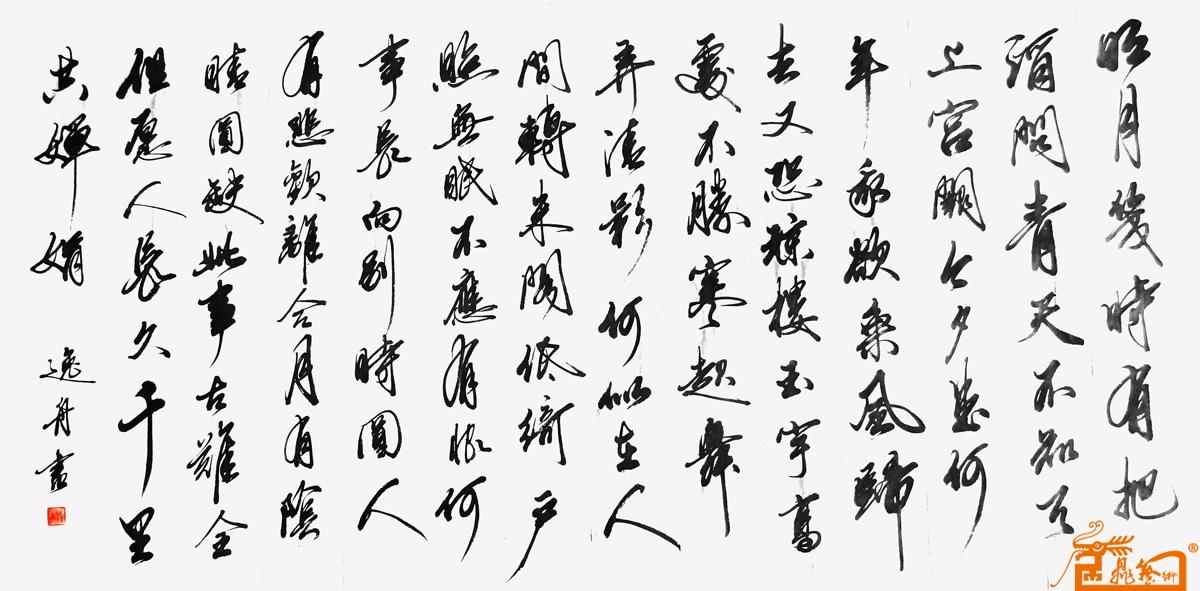 明月幾時有把
酒問青天不知天
上宮闕今夕是何
年我欲乘風歸
去又恐琼樓玉宇高
處不勝寒起舞
弄清影何似在人
間轉朱閣低綺戶
照無眠不應有恨何
事長向別時圓人
有悲歡離合月有陰
晴圓缺此事古難全
但愿人長久千里
共嬋娟
逸舟書